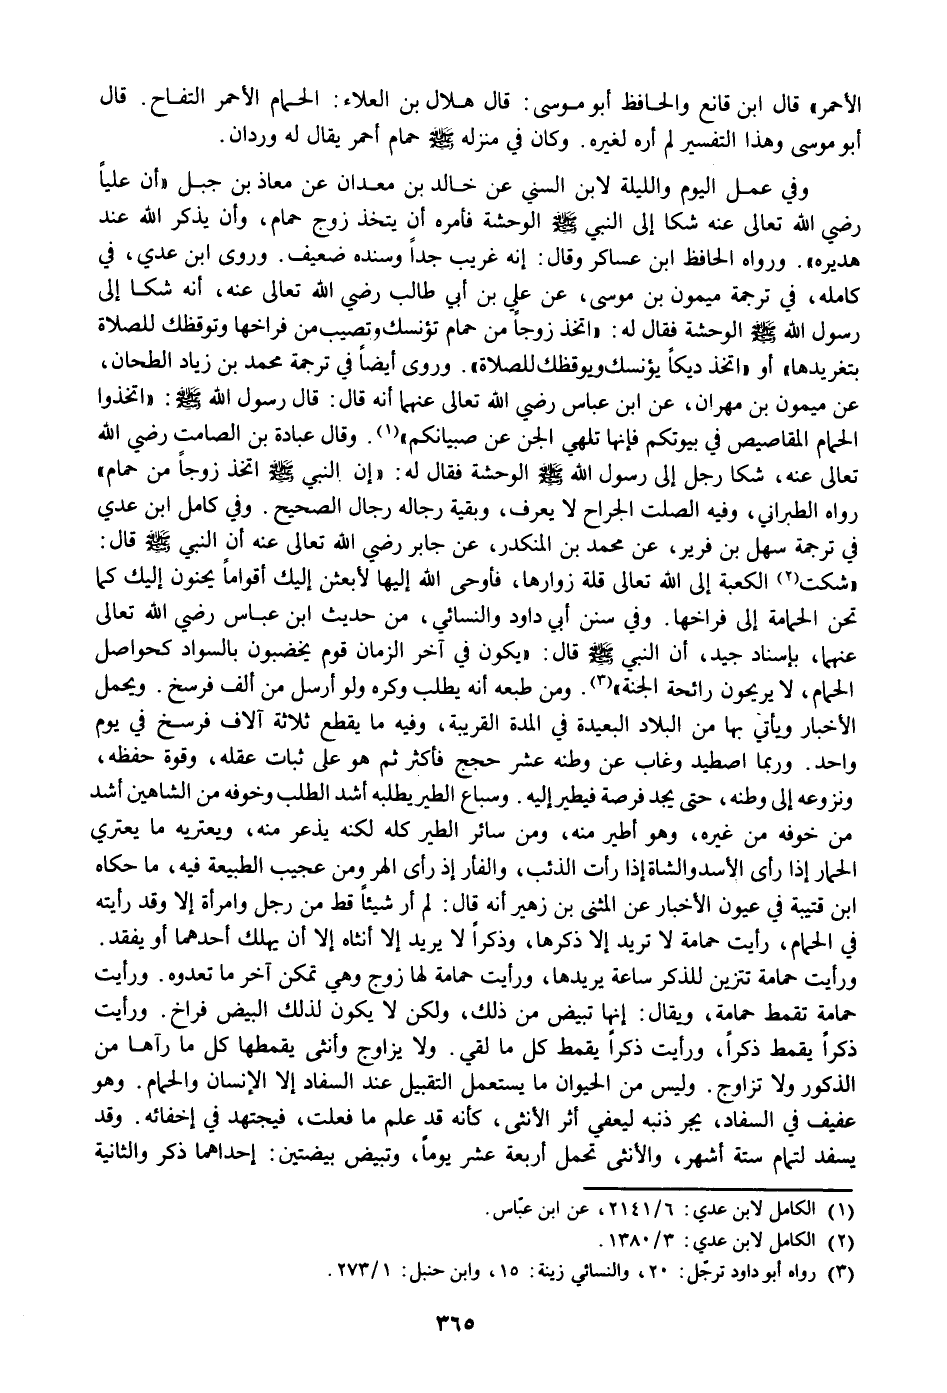 الأحمر» قال ابن قانع والحافظ أبو موسى: قال هلال بن العلاء: الحمام الأحمر التفاح. قال
أبو موسى وهذا التفسير لم أره لغيره. وكان في منزله ﷺ حمام أحمر يقال له وردان.
وفي عمل اليوم والليلة لابن السني عن خالد بن معدان عن معاذ بن جبل «أن علياً
رضي الله تعالى عنه شكا إلى النبي ﷺ الوحشة فأمره أن يتخذ زوج حمام، وأن يذكر الله عند
هديره». ورواه الحافظ ابن عساكر وقال: إنه غريب جداً وسنده ضعيف. وروى ابن عدي، في
كامله، في ترجمة ميمون بن موسى، عن علي بن أبي طالب رضي الله تعالى عنه، أنه شكا إلى
رسول الله ﷺ الوحشة فقال له: «اتخذ زوجاً من حمام تؤنسك وتصيب من فراخها وتوقظك للصلاة
بتغريدها» أو «اتخذ ديكاً يؤنسك ويوقظك للصلاة». وروى أيضاً في ترجمة محمد بن زياد الطحان،
عن ميمون بن مهران، عن ابن عباس رضي الله تعالى عنهما أنه قال: قال رسول الله ﷺ: «اتخذوا
الحمام المقاصيص في بيوتكم فإنها تلهي الجن عن صبيانكم»(١). وقال عبادة بن الصامت رضي الله
تعالى عنه، شكا رجل إلى رسول الله ﷺ الوحشة فقال له: «إن النبي ﷺ اتخذ زوجاً من حمام»
رواه الطبراني، وفيه الصلت الجراح لا يعرف، وبقية رجاله رجال الصحيح. وفي كامل ابن عدي
في ترجمة سهل بن فرير، عن محمد بن المنكدر، عن جابر رضي الله تعالى عنه أن النبي ﷺ قال:
«شكت(٢) الكعبة إلى الله تعالى قلة زوارها، فأوحى الله إليها لأبعثن إليك أقواماً يحنون إليك كما
تحن الحمامة إلى فراخها. وفي سنن أبي داود والنسائي، من حديث ابن عباس رضي الله تعالى
عنهما، بإسناد جيد، أن النبي ﷺ قال: «يكون في آخر الزمان قوم يخضبون بالسواد كحواصل
الحمام، لا يريحون رائحة الجنة»(٣). ومن طبعه أنه يطلب وكره ولو أرسل من ألف فرسخ. ويحمل
الأخبار ويأتي بها من البلاد البعيدة في المدة القريبة، وفيه ما يقطع ثلاثة آلاف فرسخ في يوم
واحد. وربما اصطيد وغاب عن وطنه عشر حجج فأكثر ثم هو على ثبات عقله، وقوة حفظه،
ونزوعه إلى وطنه، حتى يجد فرصة فيطير إليه. وسباع الطير يطلبه أشد الطلب وخوفه من الشاهين أشد
من خوفه من غيره، وهو أطير منه، ومن سائر الطير كله لكنه يذعر منه، ويعتريه ما يعتري
الحمار إذا رأى الأسد والشاة إذا رأت الذئب، والفأر إذ رأى الهر ومن عجيب الطبيعة فيه، ما حكاه
ابن قتيبة في عيون الأخبار عن المثنى بن زهير أنه قال: لم أر شيئاً قط من رجل وامرأة إلا وقد رأيته
في الحمام، رأيت حمامة لا تريد إلا ذكرها، وذكراً لا يريد إلا أنثاه إلا أن يهلك أحدهما أو يفقد.
ورأيت حمامة تتزين للذكر ساعة يريدها، ورأيت حمامة لها زوج وهي تمكن آخر ما تعدوه. ورأيت
حمامة تقمط حمامة، ويقال: إنها تبيض من ذلك، ولكن لا يكون لذلك البيض فراخ. ورأيت
ذكراً يقمط ذكراً، ورأيت ذكراً يقمط كل ما لقي. ولا يزاوج وأنثى يقمطها كل ما رآها من
الذكور ولا تزاوج. وليس من الحيوان ما يستعمل التقبيل عند السفاد إلا الإنسان والحمام. وهو
عفيف في السفاد، يجر ذنبه ليعفي أثر الأنثى، كأنه قد علم ما فعلت، فيجتهد في إخفائه. وقد
يسفد لتمام ستة أشهر، والأنثى تحمل أربعة عشر يوماً، وتبيض بيضتين: إحداهما ذكر والثانية
(١) الكامل لابن عدي: ٢١٤١/٦، عن ابن عبّاس.
(٢) الكامل لابن عدي: ١٣٨٠/٣.
(٣) رواه أبو داود ترجّل: ٢٠، والنسائي زينة: ١٥، وابن حنبل: ٢٧٣/١.
٣٦٥